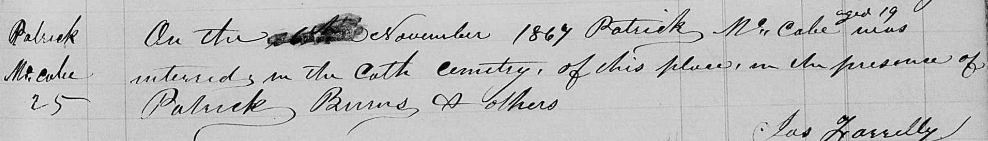 Patrick
Mc Cabe
25
aged 19
On the November 1867 Patrick Mc Cabe was
interred in the Cath cemetry, of this place, in the presence of
Patrick Burns & others
Jas Farrelly